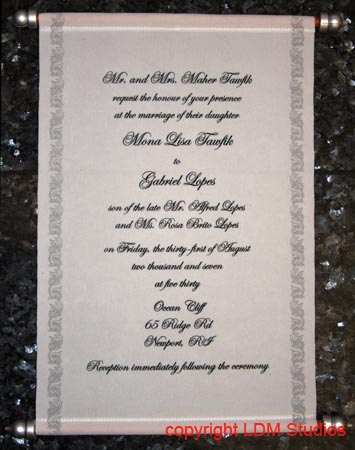 Mr. and Mrs. Maher Tawfik
request the honour of your presence
at the marriage of their daughter
Mona Lisa Tawfik
to
Gabriel Lopes
son of the late Mr. Alfred Lopes
and Ms. Rosa Brito Lopes
on Friday, the thirty-first of August
two thousand and seven
at five thirty
Ocean Cliff
65 Ridge Rd
Newport, RI
Reception immediately following the ceremony
copyright LDM Studios